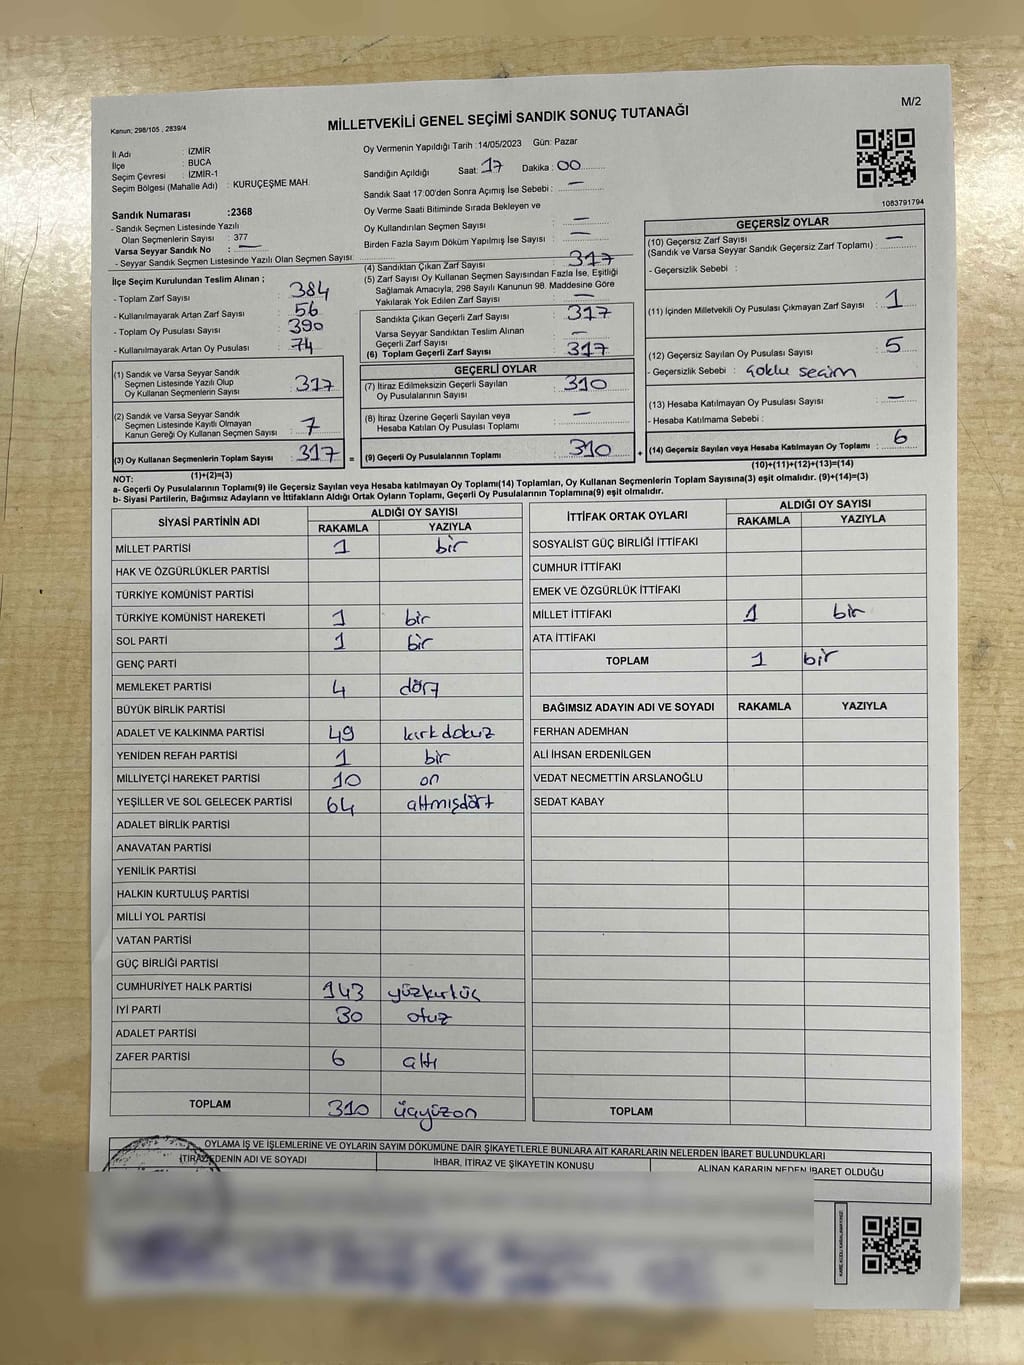 M/2
Kanun; 298/105 , 2839/4
MİLLETVEKİLİ GENEL SEÇİMİ SANDIK SONUÇ TUTANAĞI
İl Adı : İZMİR
İlçe : BUCA
Seçim Çevresi : İZMİR-1
Seçim Bölgesi (Mahalle Adı) : KURUÇEŞME MAH.
Sandık Numarası :2368
- Sandık Seçmen Listesinde Yazılı
Olan Seçmenlerin Sayısı : 377
Varsa Seyyar Sandık No : —
- Seyyar Sandık Seçmen Listesinde Yazılı Olan Seçmen Sayısı:
İlçe Seçim Kurulundan Teslim Alınan ;
- Toplam Zarf Sayısı : 384
- Kullanılmayarak Artan Zarf Sayısı : 56
- Toplam Oy Pusulası Sayısı : 390
- Kullanılmayarak Artan Oy Pusulası : 74
(1) Sandık ve Varsa Seyyar Sandık
Seçmen Listesinde Yazılı Olup
Oy Kullanan Seçmenlerin Sayısı : 317
(2) Sandık ve Varsa Seyyar Sandık
Seçmen Listesinde Kayıtlı Olmayan
Kanun Gereği Oy Kullanan Seçmen Sayısı : 7
(3) Oy Kullanan Seçmenlerin Toplam Sayısı : 317 =
(1)+(2)=(3)
Oy Vermenin Yapıldığı Tarih : 14/05/2023 Gün: Pazar
Sandığın Açıldığı Saat: 17 Dakika : 00
Sandık Saat 17:00'den Sonra Açımış İse Sebebi : —
Oy Verme Saati Bitiminde Sırada Bekleyen ve
Oy Kullandırılan Seçmen Sayısı : —
Birden Fazla Sayım Döküm Yapılmış İse Sayısı : —
(4) Sandıktan Çıkan Zarf Sayısı : 317
(5) Zarf Sayısı Oy Kullanan Seçmen Sayısından Fazla İse, Eşitliği
Sağlamak Amacıyla, 298 Sayılı Kanunun 98. Maddesine Göre
Yakılarak Yok Edilen Zarf Sayısı : —
Sandıkta Çıkan Geçerli Zarf Sayısı : 317
Varsa Seyyar Sandıktan Teslim Alınan
Geçerli Zarf Sayısı : —
(6) Toplam Geçerli Zarf Sayısı : 317
GEÇERLİ OYLAR
(7) İtiraz Edilmeksizin Geçerli Sayılan
Oy Pusulalarının Sayısı : 310
(8) İtiraz Üzerine Geçerli Sayılan veya
Hesaba Katılan Oy Pusulası Toplamı : —
(9) Geçerli Oy Pusulalarının Toplamı : 310 +
1083791794
GEÇERSİZ OYLAR
(10) Geçersiz Zarf Sayısı
(Sandık ve Varsa Seyyar Sandık Geçersiz Zarf Toplamı) : —
- Geçersizlik Sebebi :
(11) İçinden Milletvekili Oy Pusulası Çıkmayan Zarf Sayısı : 1
(12) Geçersiz Sayılan Oy Pusulası Sayısı : 5
- Geçersizlik Sebebi : Çoklu seçim
(13) Hesaba Katılmayan Oy Pusulası Sayısı : —
- Hesaba Katılmama Sebebi :
(14) Geçersiz Sayılan veya Hesaba Katılmayan Oy Toplamı : 6
(10)+(11)+(12)+(13)=(14)
NOT:
a- Geçerli Oy Pusulalarının Toplamı(9) ile Geçersiz Sayılan veya Hesaba katılmayan Oy Toplamı(14) Toplamları, Oy Kullanan Seçmenlerin Toplam Sayısına(3) eşit olmalıdır. (9)+(14)=(3)
b- Siyasi Partilerin, Bağımsız Adayların ve İttifakların Aldığı Ortak Oyların Toplamı, Geçerli Oy Pusulalarının Toplamına(9) eşit olmalıdır.
SİYASİ PARTİNİN ADI ALDIĞI OY SAYISI
RAKAMLA YAZIYLA
MİLLET PARTİSİ 1 bir
HAK VE ÖZGÜRLÜKLER PARTİSİ
TÜRKİYE KOMÜNİST PARTİSİ
TÜRKİYE KOMÜNİST HAREKETİ 1 bir
SOL PARTİ 1 bir
GENÇ PARTİ
MEMLEKET PARTİSİ 4 dört
BÜYÜK BİRLİK PARTİSİ
ADALET VE KALKINMA PARTİSİ 49 kırkdokuz
YENİDEN REFAH PARTİSİ 1 bir
MİLLİYETÇİ HAREKET PARTİSİ 10 on
YEŞİLLER VE SOL GELECEK PARTİSİ 64 altmışdört
ADALET BİRLİK PARTİSİ
ANAVATAN PARTİSİ
YENİLİK PARTİSİ
HALKIN KURTULUŞ PARTİSİ
MİLLİ YOL PARTİSİ
VATAN PARTİSİ
GÜÇ BİRLİĞİ PARTİSİ
CUMHURİYET HALK PARTİSİ 143 yüzkırküç
İYİ PARTİ 30 otuz
ADALET PARTİSİ
ZAFER PARTİSİ 6 altı
TOPLAM 310 üçyüzon
İTTİFAK ORTAK OYLARI ALDIĞI OY SAYISI
RAKAMLA YAZIYLA
SOSYALİST GÜÇ BİRLİĞİ İTTİFAKI
CUMHUR İTTİFAKI
EMEK VE ÖZGÜRLÜK İTTİFAKI
MİLLET İTTİFAKI 1 bir
ATA İTTİFAKI
TOPLAM 1 bir
BAĞIMSIZ ADAYIN ADI VE SOYADI RAKAMLA YAZIYLA
FERHAN ADEMHAN
ALİ İHSAN ERDENİLGEN
VEDAT NECMETTİN ARSLANOĞLU
SEDAT KABAY
TOPLAM
OYLAMA İŞ VE İŞLEMLERİNE VE OYLARIN SAYIM DÖKÜMÜNE DAİR ŞİKAYETLERLE BUNLARA AİT KARARLARIN NELERDEN İBARET BULUNDUKLARI
İTİRAZ EDENİN ADI VE SOYADI İHBAR, İTİRAZ VE ŞİKAYETİN KONUSU ALINAN KARARIN NEDEN İBARET OLDUĞU